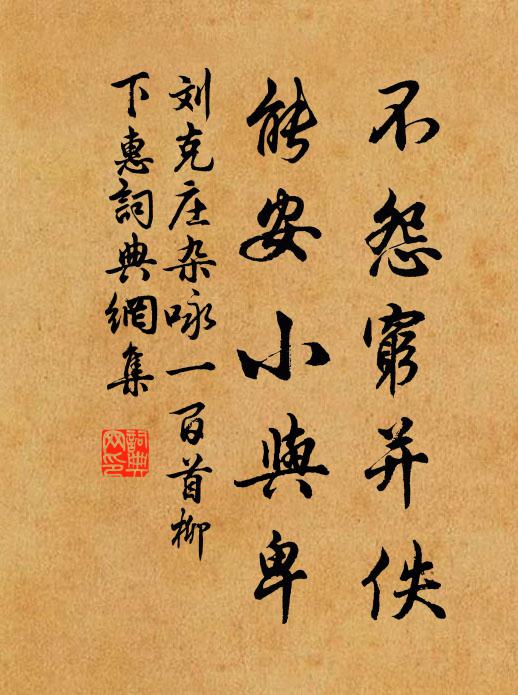 不怨窮并佚
能安小與卑
刘克庄杂咏一百首柳
下惠詞典網集
詞典网印